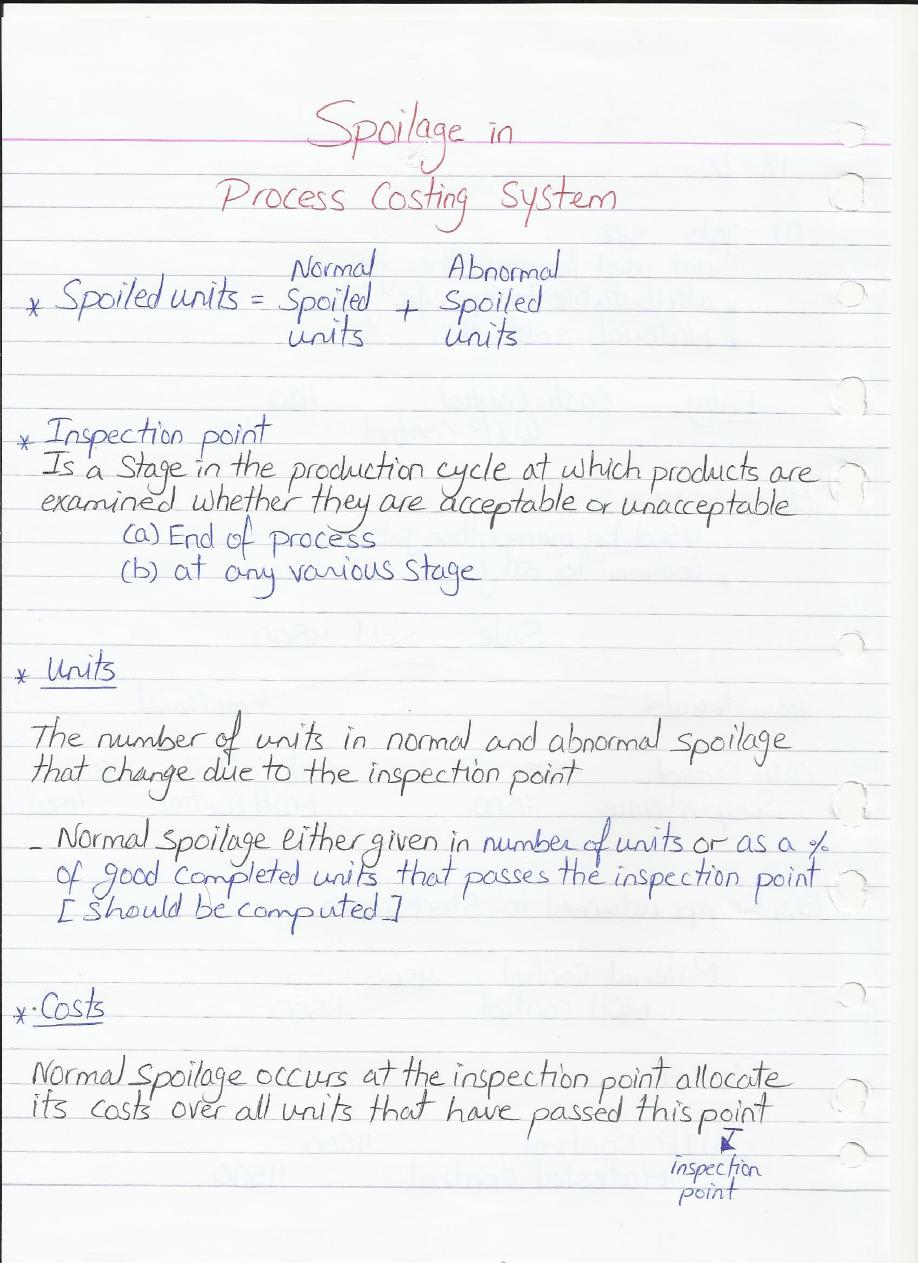 Spoilage in
Process Costing System
* Spoiled units = Normal Spoiled units + Abnormal Spoiled units
* Inspection point
Is a Stage in the production cycle at which products are
examined whether they are acceptable or unacceptable
(a) End of process
(b) at any various stage
* Units
The number of units in normal and abnormal spoilage
that change due to the inspection point
- Normal spoilage either given in number of units or as a %
of good completed units that passes the inspection point
[should be computed]
*. Costs
Normal spoilage occurs at the inspection point allocate
its costs over all units that have passed this point
inspection
point